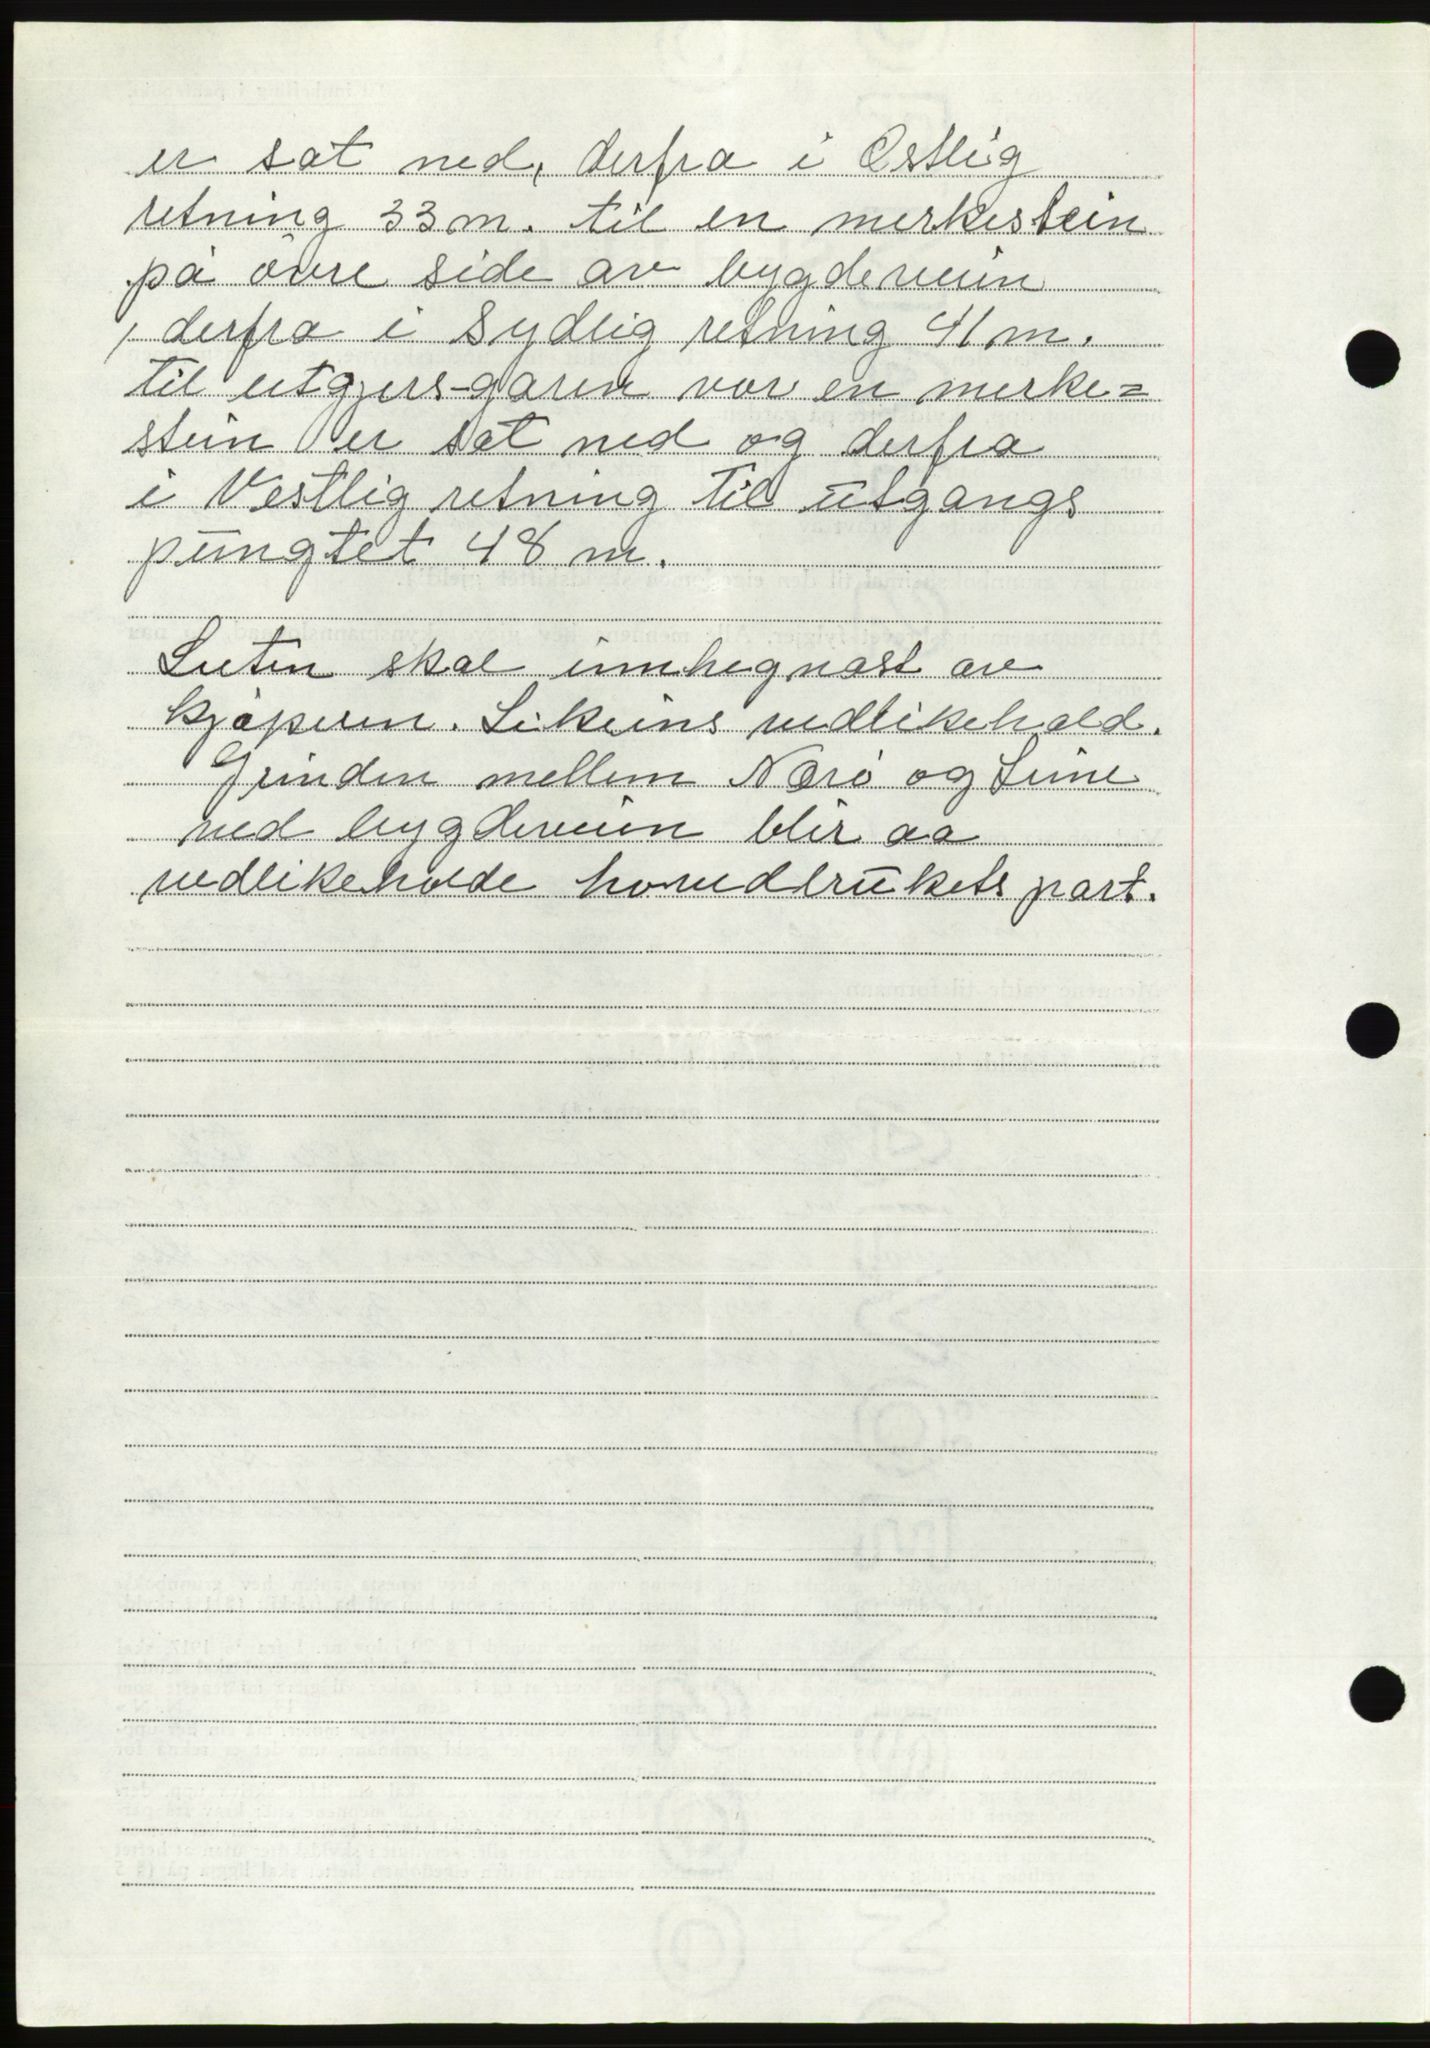 er sat ned, derfra i Østlig
retning 33 m. til en merkestein
på øvre side av bygdeveien
, derfra i Sydlig retning 41 m.
til utgjers-garen vor en merke=
stein er sat ned og derfra
i Vestlig retning til utgangs
pungtet 48 m.
Luten skal innhegnast av
kjøperen. Likeins vedlikehald.
Grinden mellem Nerø og Leine
ved bygdeveien blir aa
vedlikeholde hovedbrukets part.